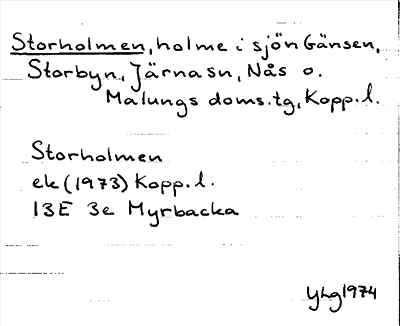 Storholmen, holme i sjön Gänsen,
Storbyn, Järnasn, Nås o.
Malungs doms.tg, Kopp.l.
Storholmen
ek (1973) Kopp.l.
13E 3e Myrbacka
YLg 1974